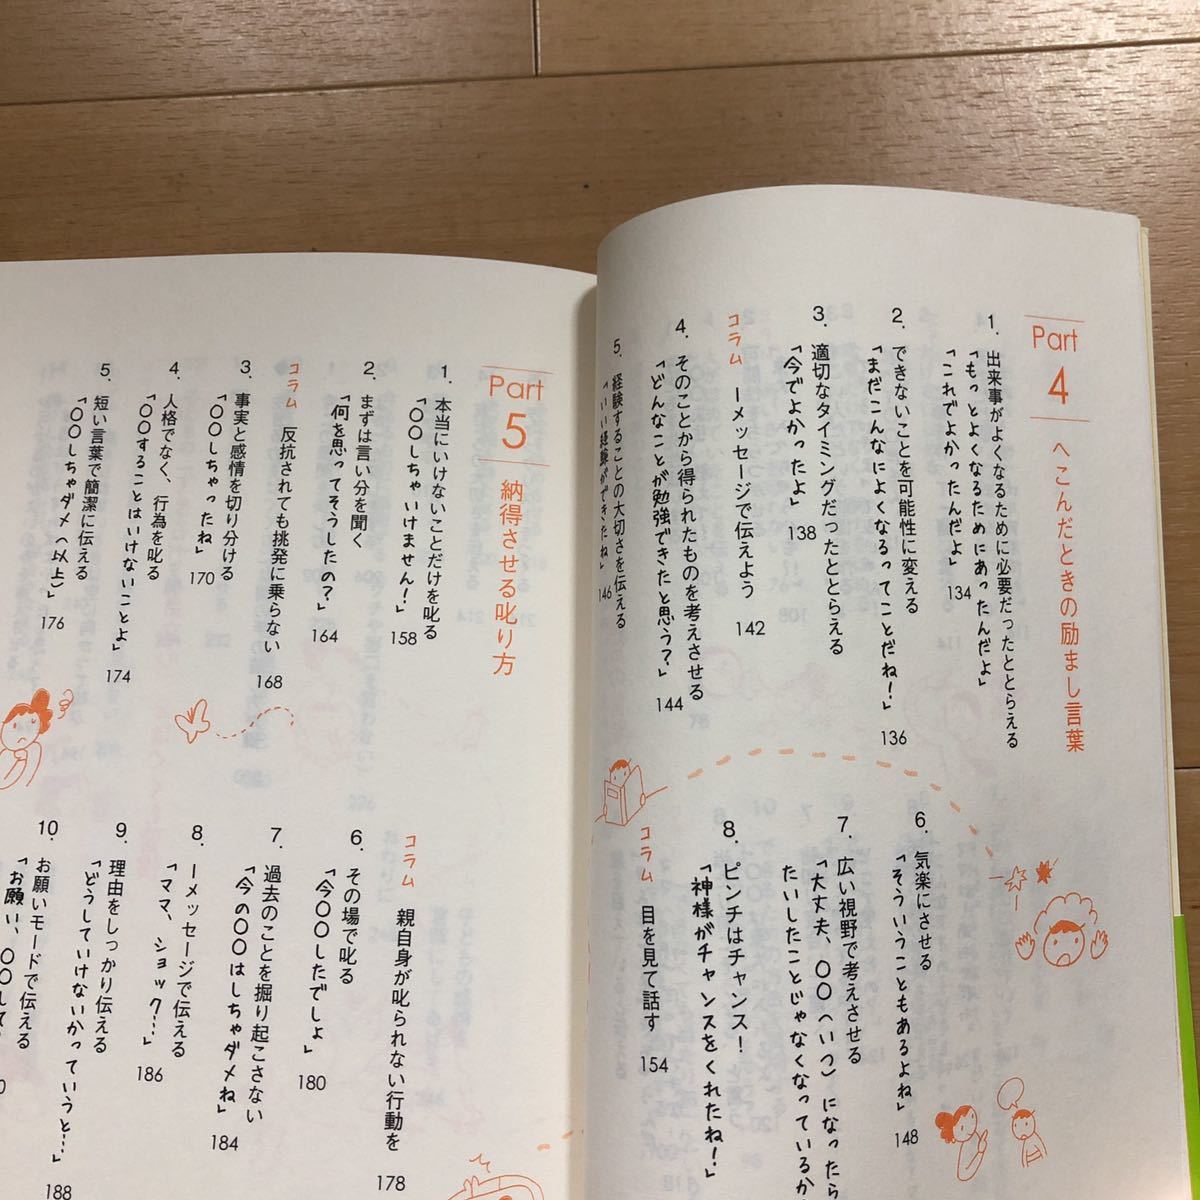 Part 4 へこんだときの励まし言葉
1. 出来事がよくなるために必要だったととらえる
「もっとよくなるためにあったんだよ」
「これでよかったんだよ」 134
2. できないことを可能性に変える
「まだこんなによくなるってことだね！」 136
3. 適切なタイミングだったととらえる
「今でよかったよ」 138
コラム Iメッセージで伝えよう 142
4. そのことから得られたものを考えさせる
「どんなことが勉強できたと思う？」 144
5. 経験することの大切さを伝える
「いい経験ができたね」 146
6. 気楽にさせる
「そういうこともあるよね」 148
7. 広い視野で考えさせる
「大丈夫、〇〇〈いつ〉になったら
たいしたことじゃなくなっているか
8. ピンチはチャンス！
「神様がチャンスをくれたね！」
コラム 目を見て話す 154
Part 5 納得させる叱り方
1. 本当にいけないことだけを叱る
「〇〇しちゃいけません！」 158
2. まずは言い分を聞く
「何を思ってそうしたの？」 164
コラム 反抗されても挑発に乗らない 168
3. 事実と感情を切り分ける
「〇〇しちゃったね」 170
4. 人格でなく、行為を叱る
「〇〇することはいけないことよ」 174
5. 短い言葉で簡潔に伝える
「〇〇しちゃダメ〈以上〉」 176
コラム 親自身が叱られない行動を 178
6. その場で叱る
「今〇〇したでしょ」 180
7. 過去のことを掘り起こさない
「今の〇〇はしちゃダメね」 184
8. Iメッセージで伝える
「ママ、ショック…」 186
9. 理由をしっかり伝える
「どうしていけないかっていうと…」 188
10. お願いモードで伝える
「お願い、〇〇して